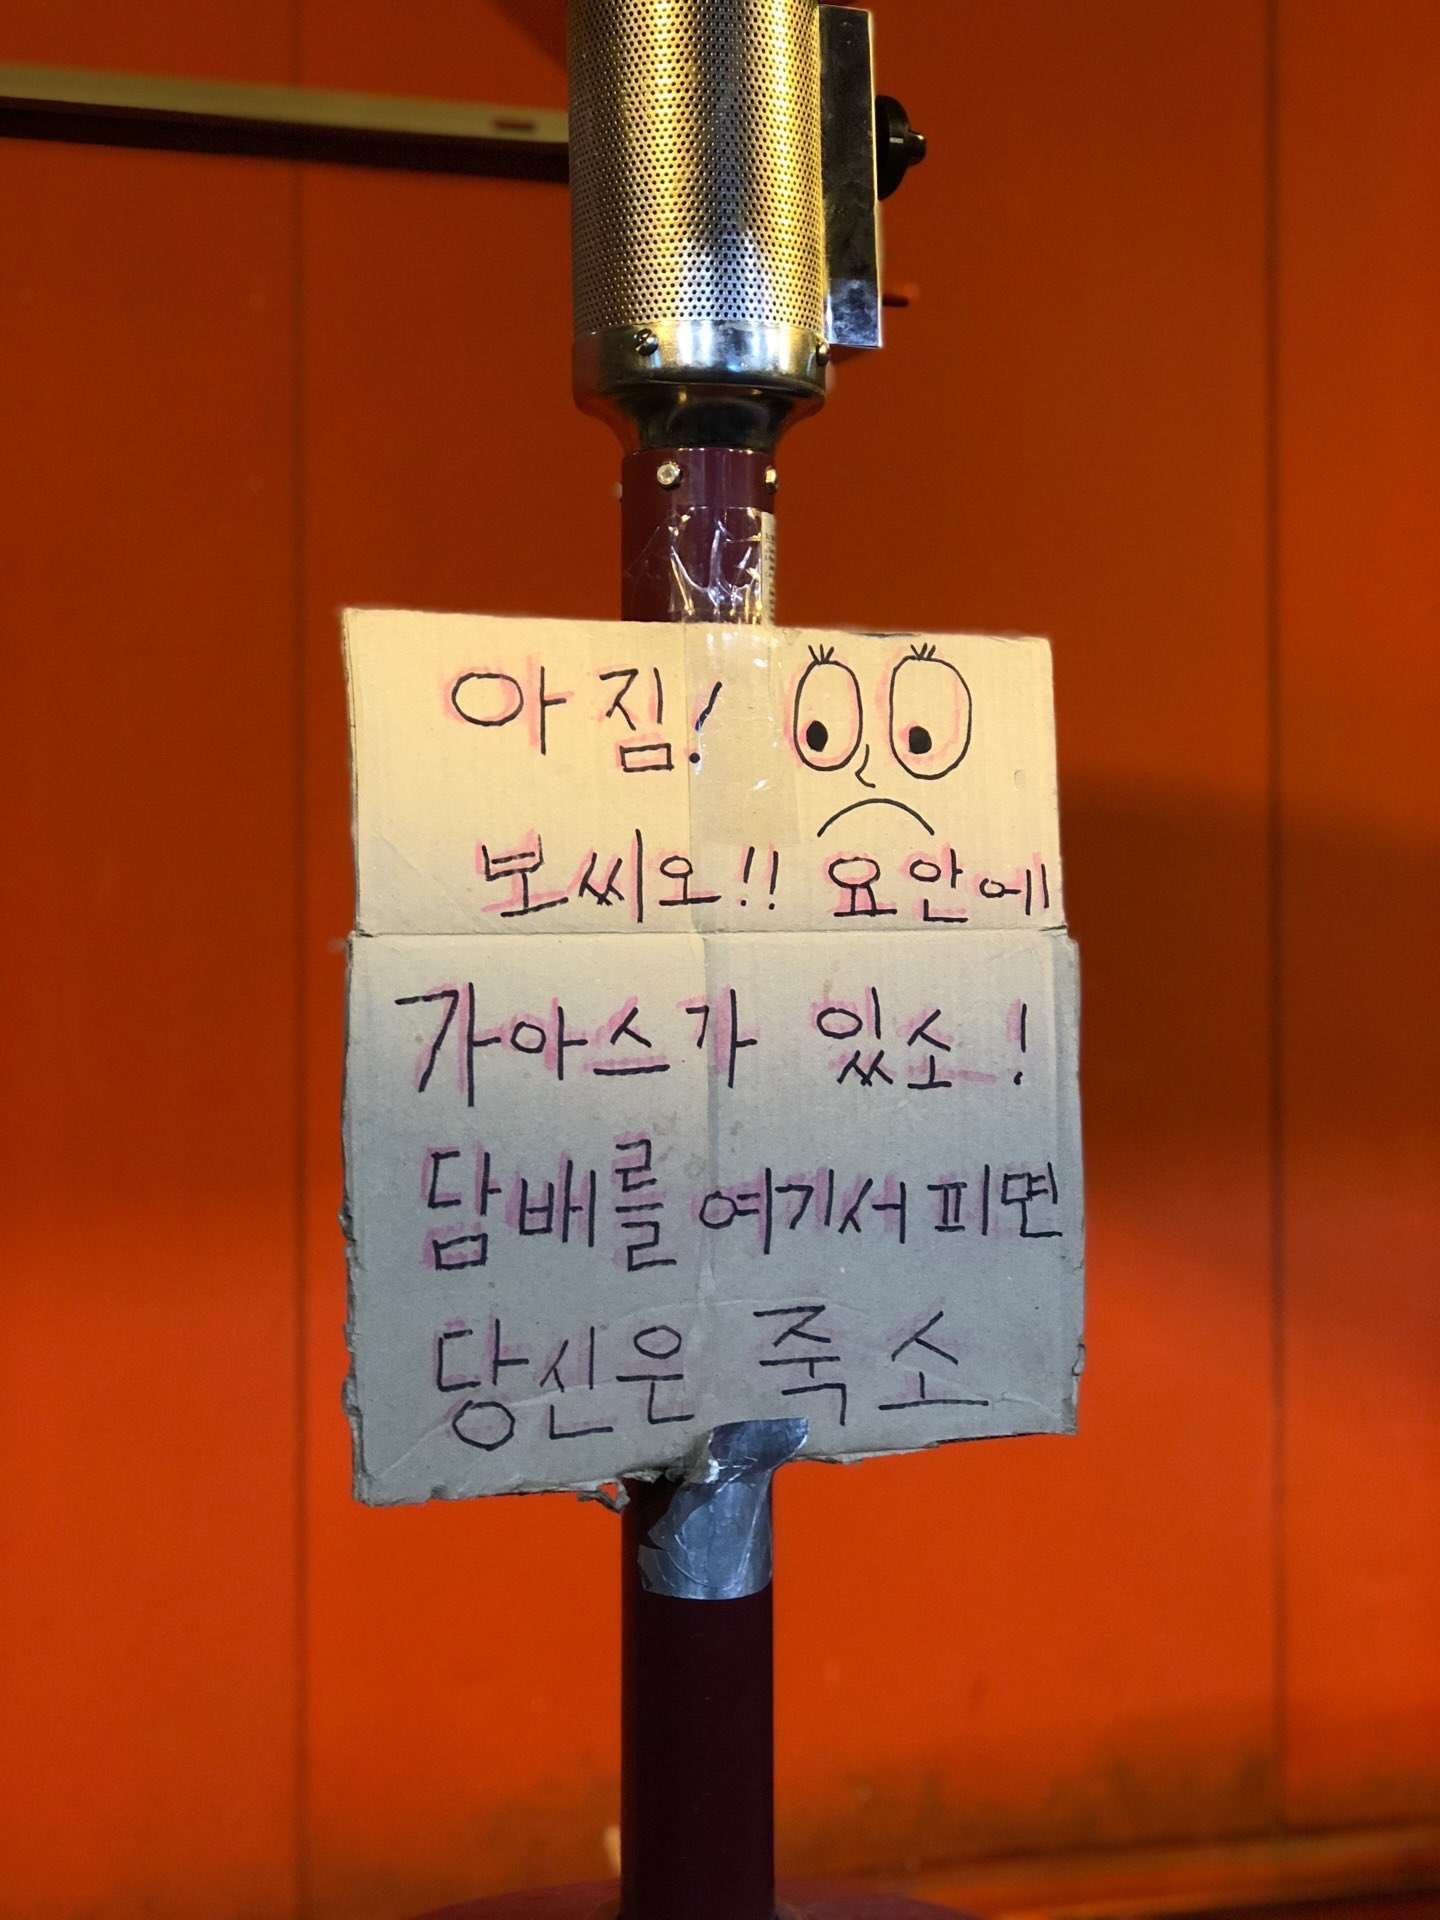 아짐!
보씨오!! 요안에
가아스가 있소!
담배를 여기서피면
당신은 죽소